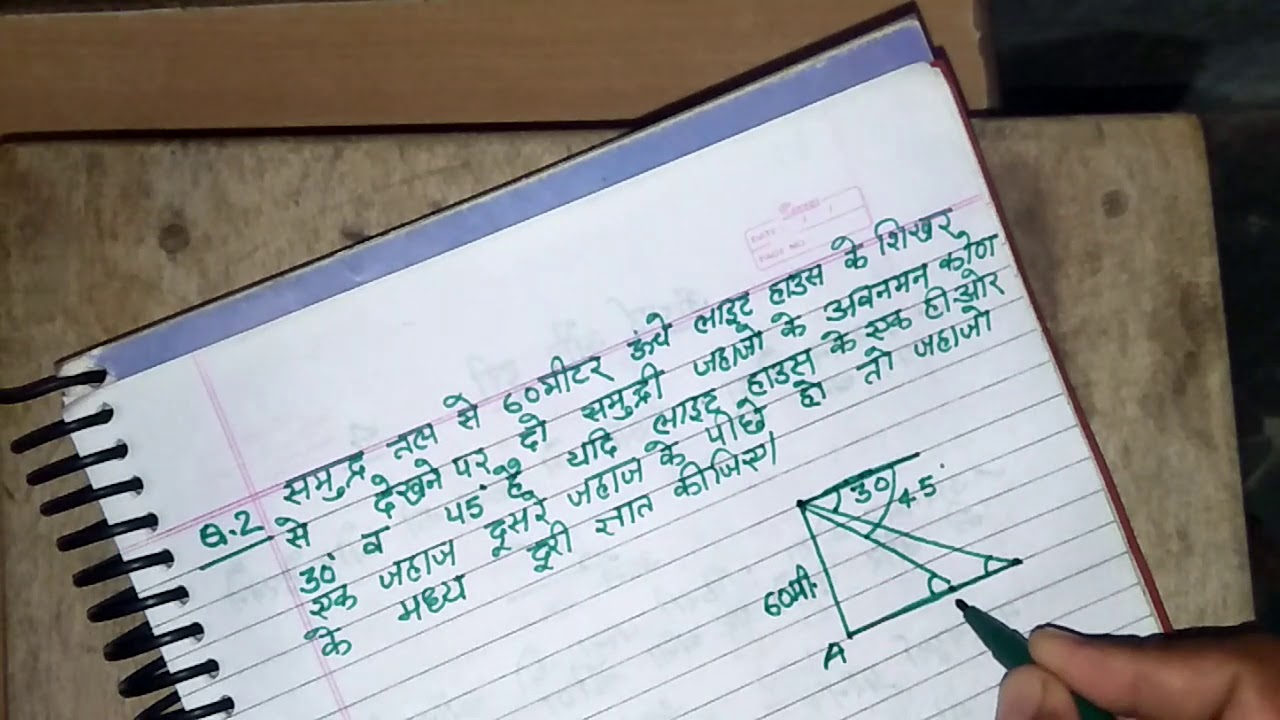 Q.2 समुद्र तल से 60 मीटर ऊंचे लाइट हाउस के शिखर
से देखने पर दो समुद्री जहाजो के अवनमन कोण
30° व 45° है यदि लाइट हाउस के एक ही ओर
एक जहाज दूसरे जहाज के पीछे हो तो जहाजो
के मध्य दूरी ज्ञात कीजिए।
30
45°
60मी.
A